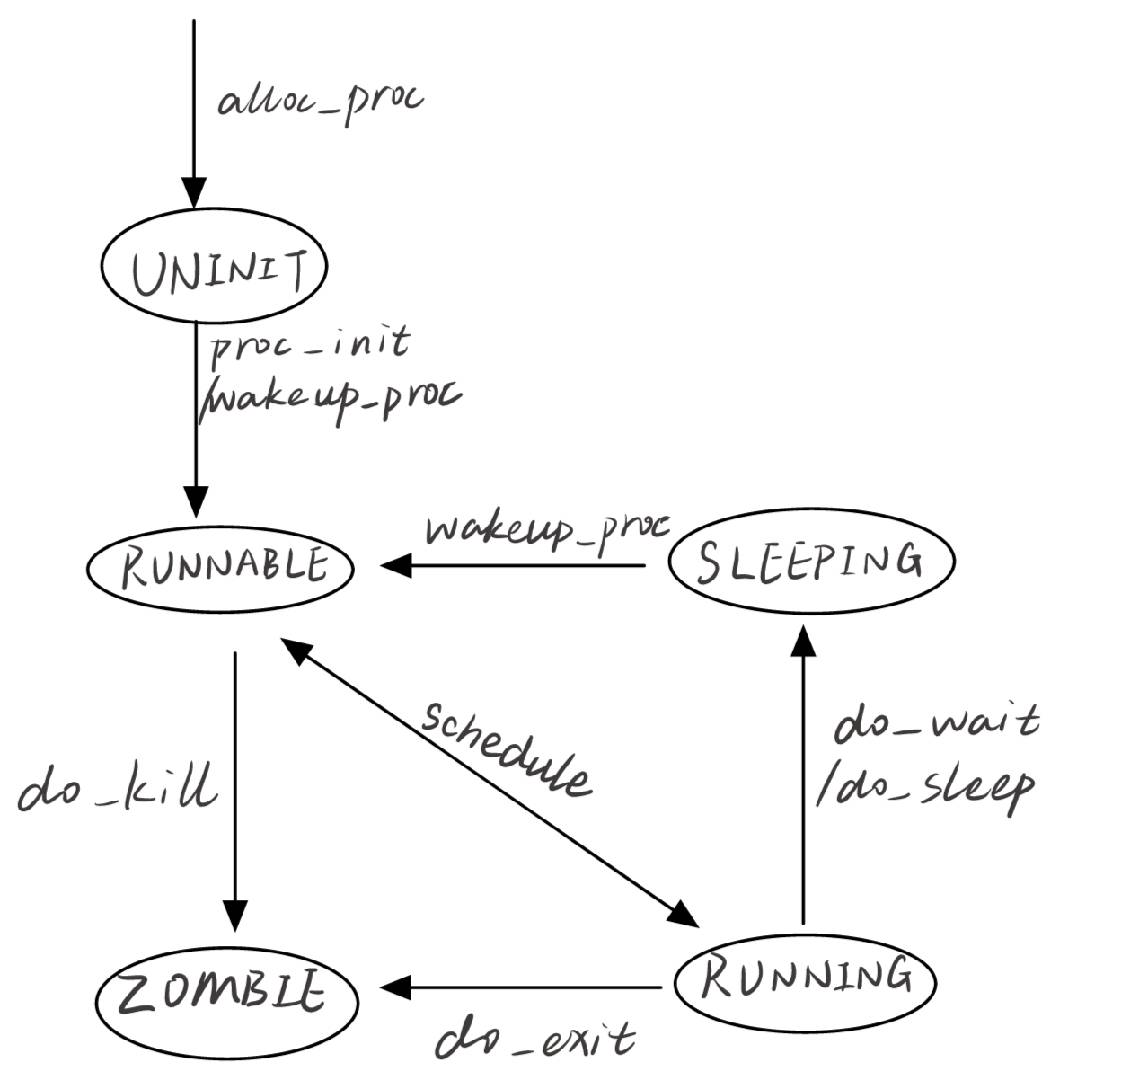 alloc_proc
UNINIT
proc_init
/wakeup_proc
wakeup_proc
RUNNABLE
SLEEPING
schedule
do_wait
/do_sleep
do_kill
ZOMBIE
RUNNING
do_exit